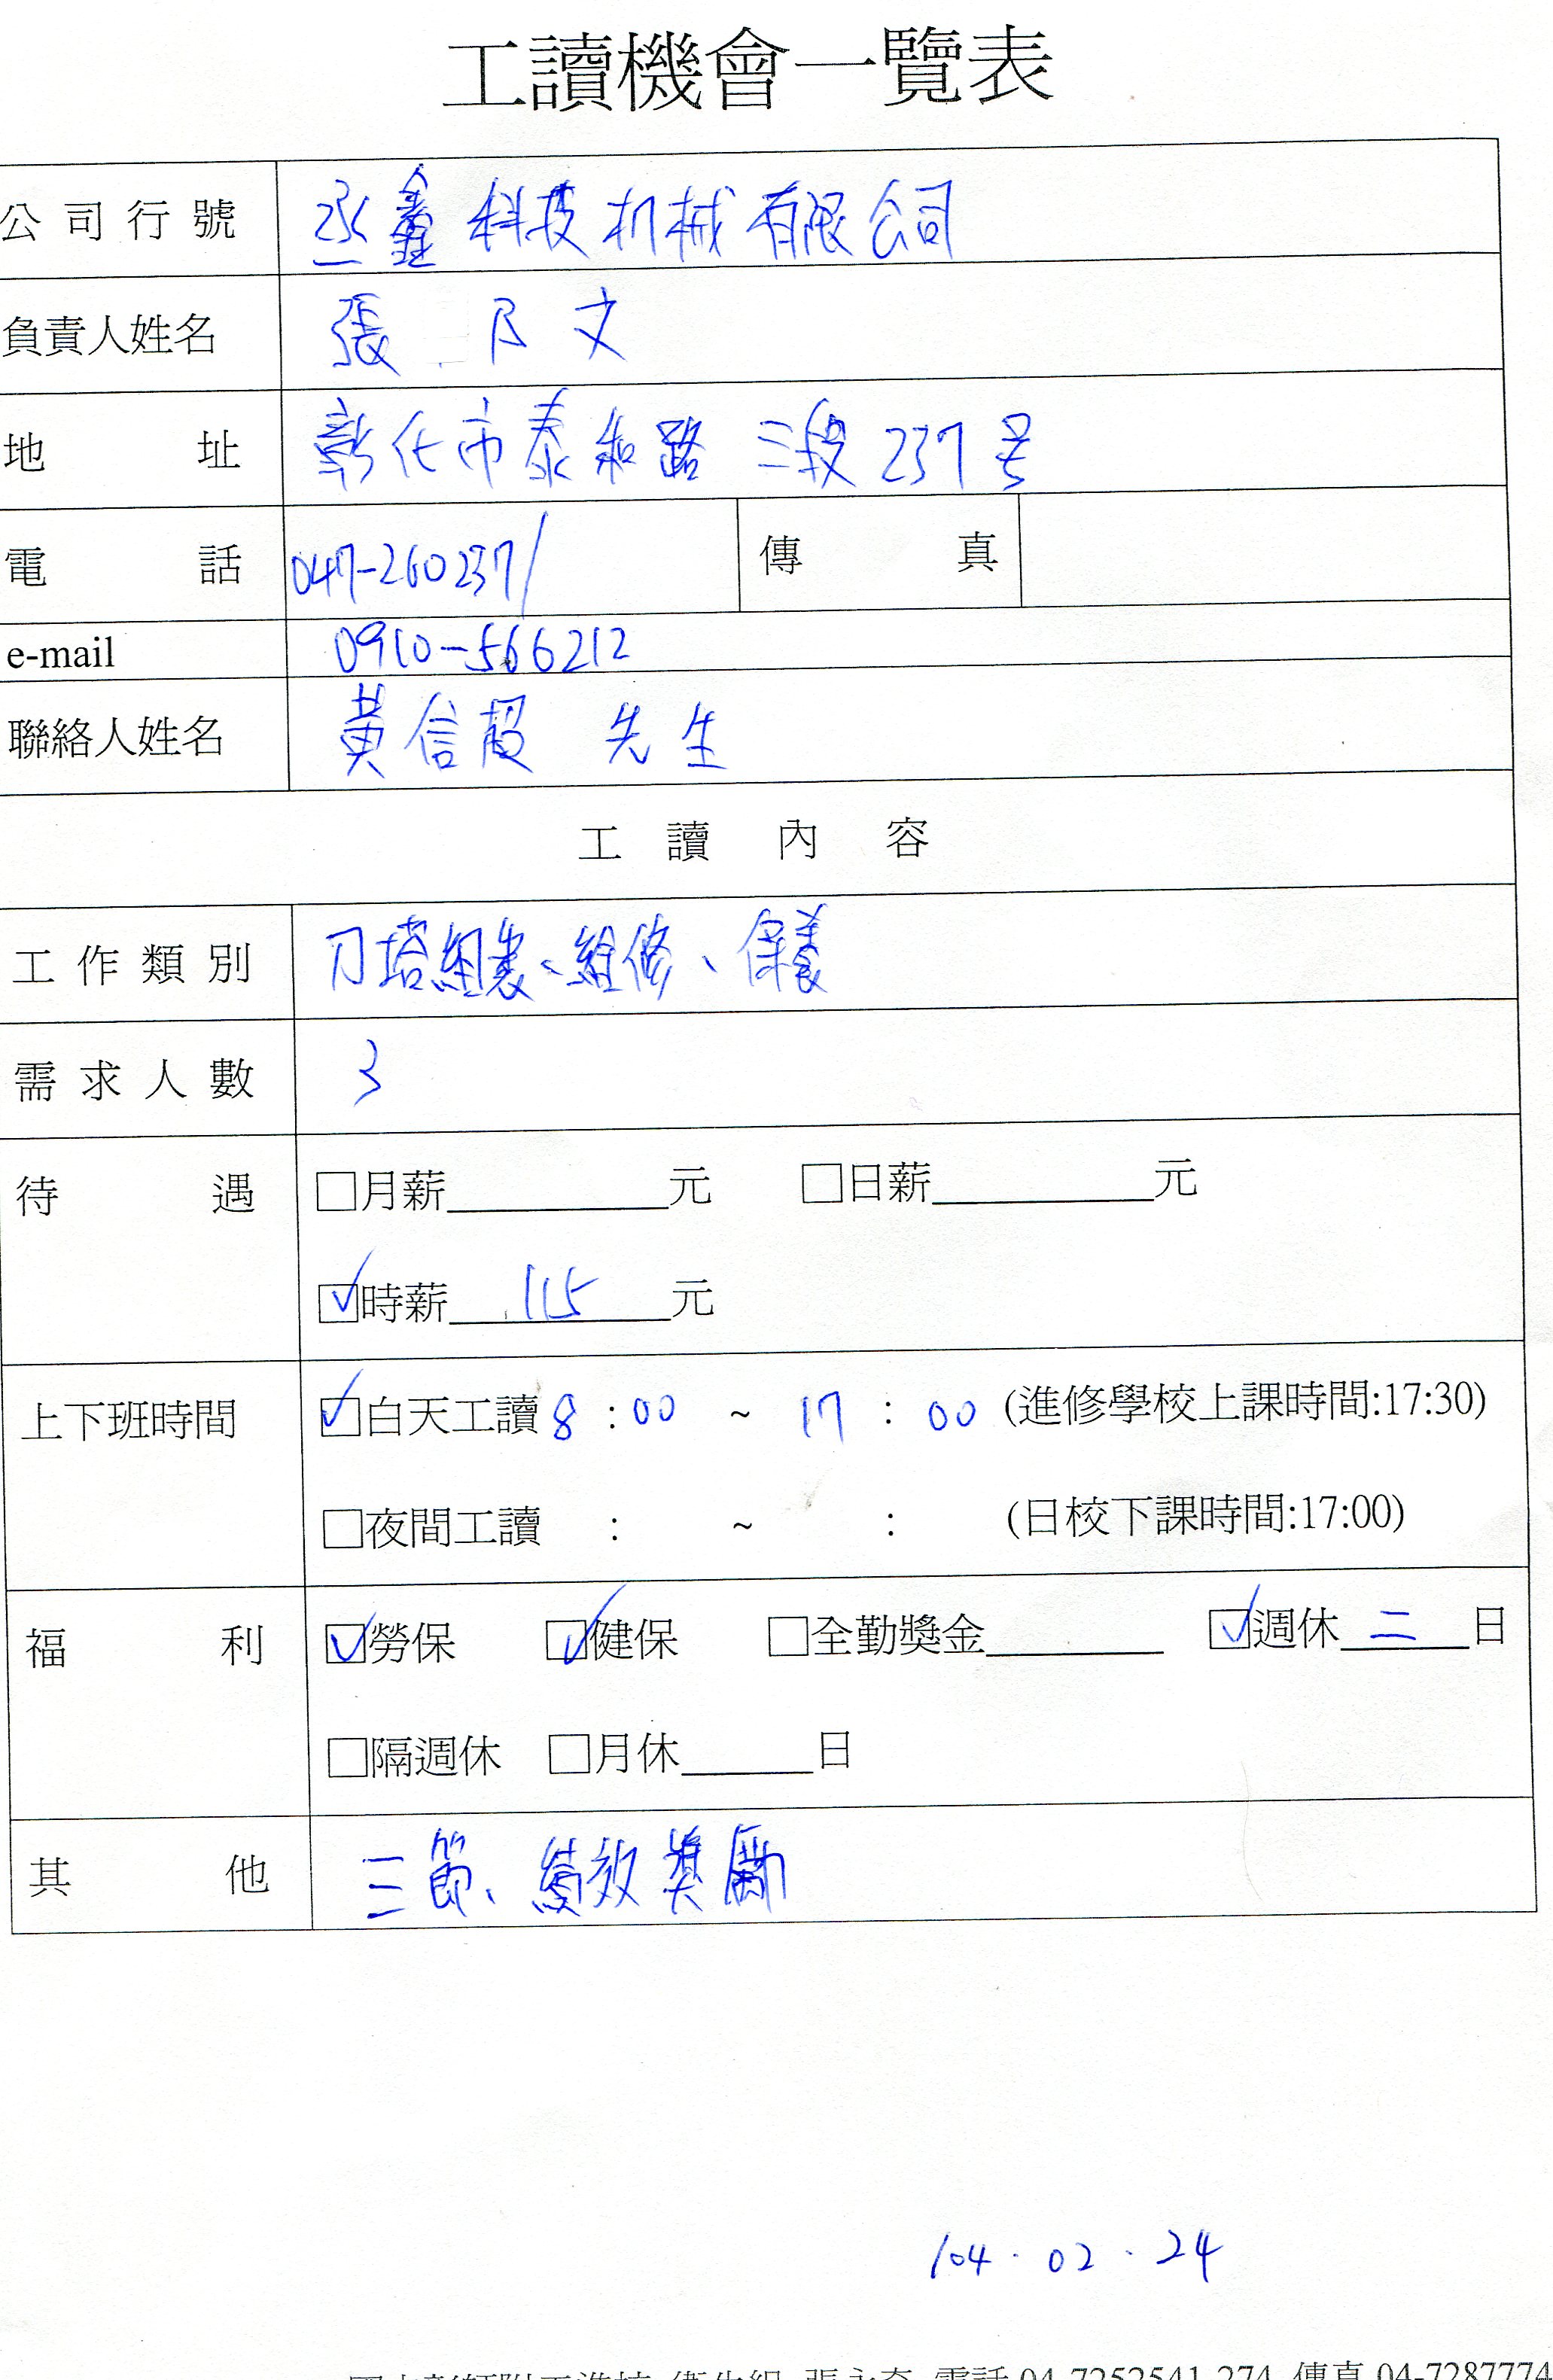 工讀機會一覽表
公司行號 丞鑫科技机械有限公司
負責人姓名 張 乃文
地址 彰化市泰和路三段237号
電話 047-260237/ 傳真
e-mail 0910-566212
聯絡人姓名 黃信超 先生
工讀內容
工作類別 刀塔組裝、維修、保養
需求人數 3
待遇 □月薪 元 □日薪 元
☑時薪 115 元
上下班時間 ☑白天工讀 8:00 ~ 17:00 (進修學校上課時間:17:30)
□夜間工讀 : ~ : (日校下課時間:17:00)
福利 ☑勞保 ☑健保 □全勤獎金 ☑週休 二 日
□隔週休 □月休 日
其他 三節、績效獎勵
104.02.24
電話 04-7252541-274 傳真 04-7287774